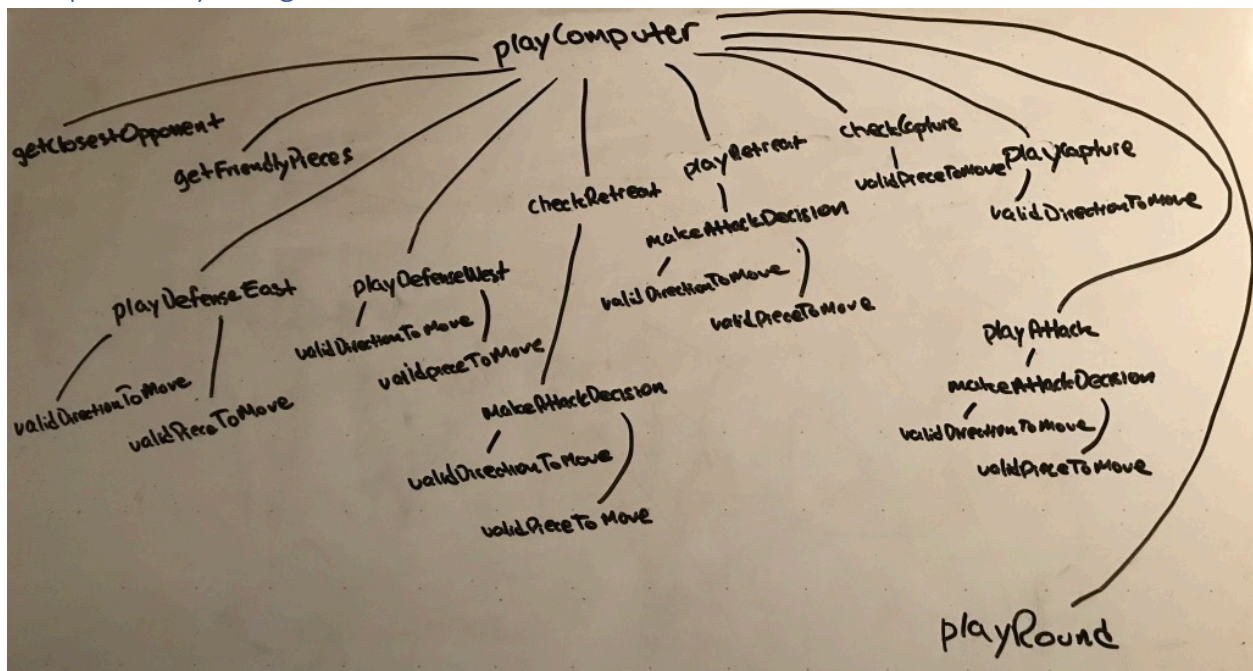 playComputer
getClosestOpponent
getFriendlyPieces
playDefenseEast
validDirectionToMove
validPieceToMove
playDefenseWest
validDirectionToMove
validpieceToMove
checkRetreat
makeAttackDecision
validDirectionToMove
validPieceToMove
playRetreat
makeAttackDecision
validDirectionToMove
validPieceToMove
checkCapture
validPieceToMove
playCapture
validDirectionToMove
playAttack
makeAttackDecision
validDirectionToMove
validPieceToMove
playRound